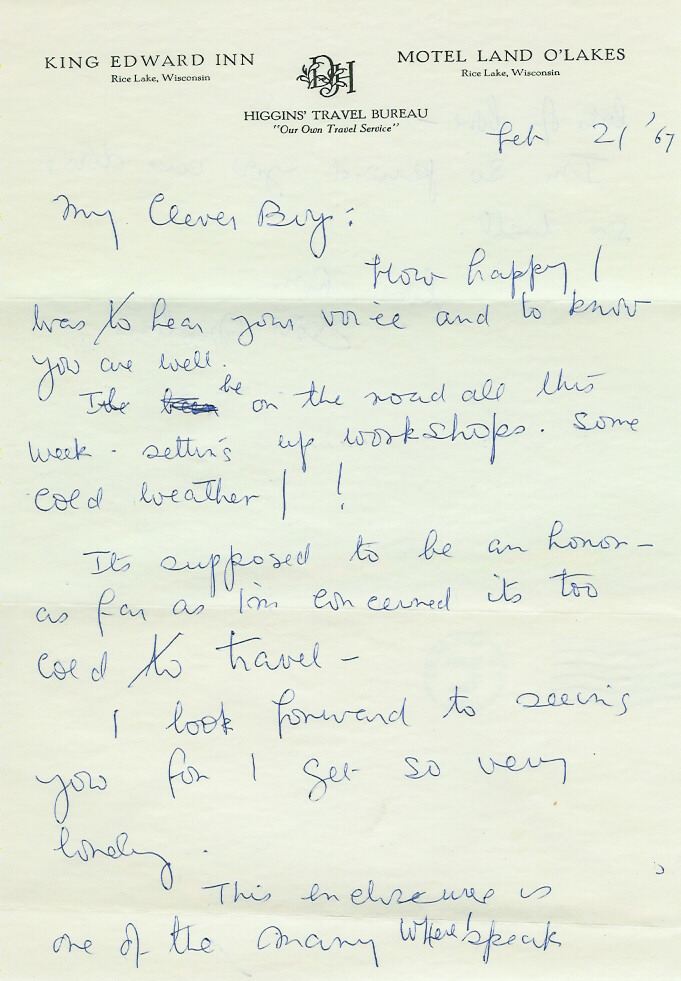 KING EDWARD INN
Rice Lake, Wisconsin
MOTEL LAND O'LAKES
Rice Lake, Wisconsin
HIGGINS' TRAVEL BUREAU
"Our Own Travel Service"
Feb 21 '67
My Clever Boy:
How happy I
was to hear your voice and to know
you are well.
I'll be on the road all this
week - setting up workshops. Some
cold weather! !
Its supposed to be an honor -
as far as I'm concerned its too
cold to travel -
I look forward to seeing
you for I get so very
lonely.
This enclosure is
one of the many where I speak